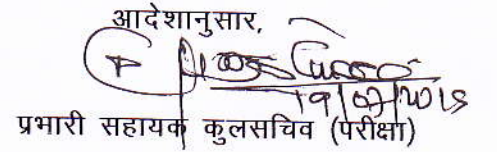 आदेशानुसार,
19/07/2019
प्रभारी सहायक कुलसचिव (परीक्षा)